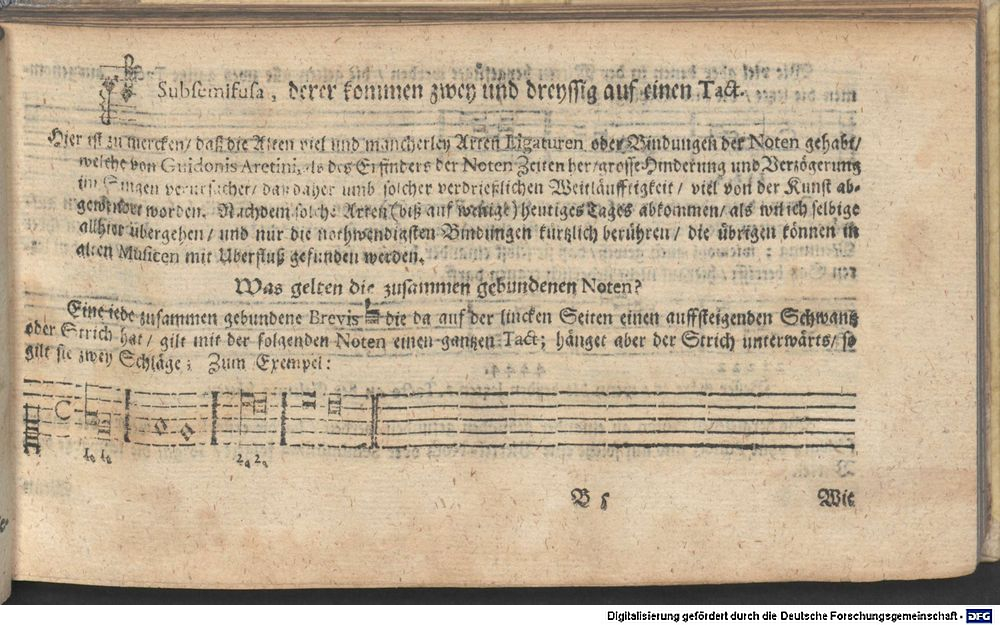 Subsemifusa, derer kommen zwey und dreyssig auf einen Tact.
Hier ist zu mercken/ daß die Alten viel und mancherley Arten Ligaturen oder Bindungen der Noten gehabt/
welche von Guidonis Aretini, als des Erfinders der Noten Zeiten her/ grosse Hinderung und Verzögerung
im Singen verursachet/ daß daher umb solcher verdrießlichen Weitläufftigkeit/ viel von der Kunst ab-
gewendet worden. Nachdem solche Arten (biß auf wenige) heutiges Tages abkommen/ als wil ich selbige
allhier übergehen/ und nur die nothwendigsten Bindungen kürtzlich berühren/ die übrigen können in
alten Musicen mit Uberfluß gefunden werden.
Was gelten die zusammen gebundenen Noten?
Eine jede zusammen gebundene Brevis die da auf der lincken Seiten einen auffsteigenden Schwantz
oder Strich hat/ gilt mit der folgenden Noten einen gantzen Tact; hänget aber der Strich unterwärts/ so
gilt sie zwey Schläge; Zum Exempel:
B 5
Wie
Digitalisierung gefördert durch die Deutsche Forschungsgemeinschaft - DFG